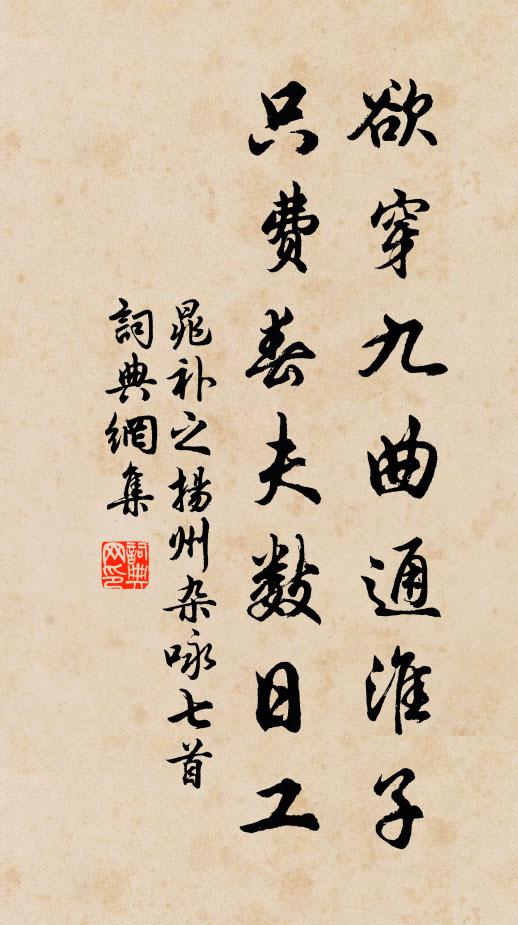 欲穿九曲通淮子
只费春夫数日工
晁补之揚州杂咏七首
詞典網集
詞典網印